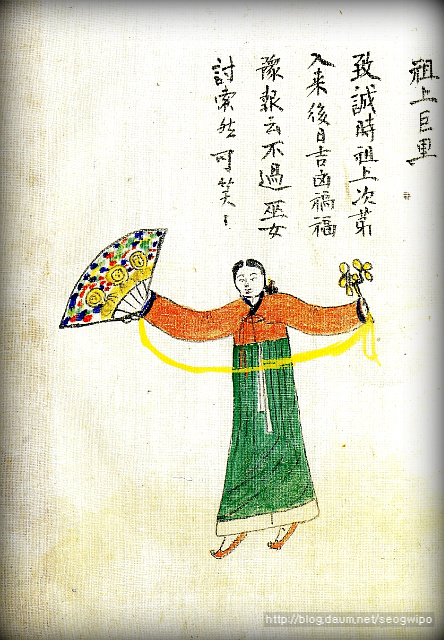 祖上巨里
致誠時祖上次第
入来後日吉凶禍福
豫報云不過巫女
討索然可笑〻
http://blog.daum.net/seogwipo